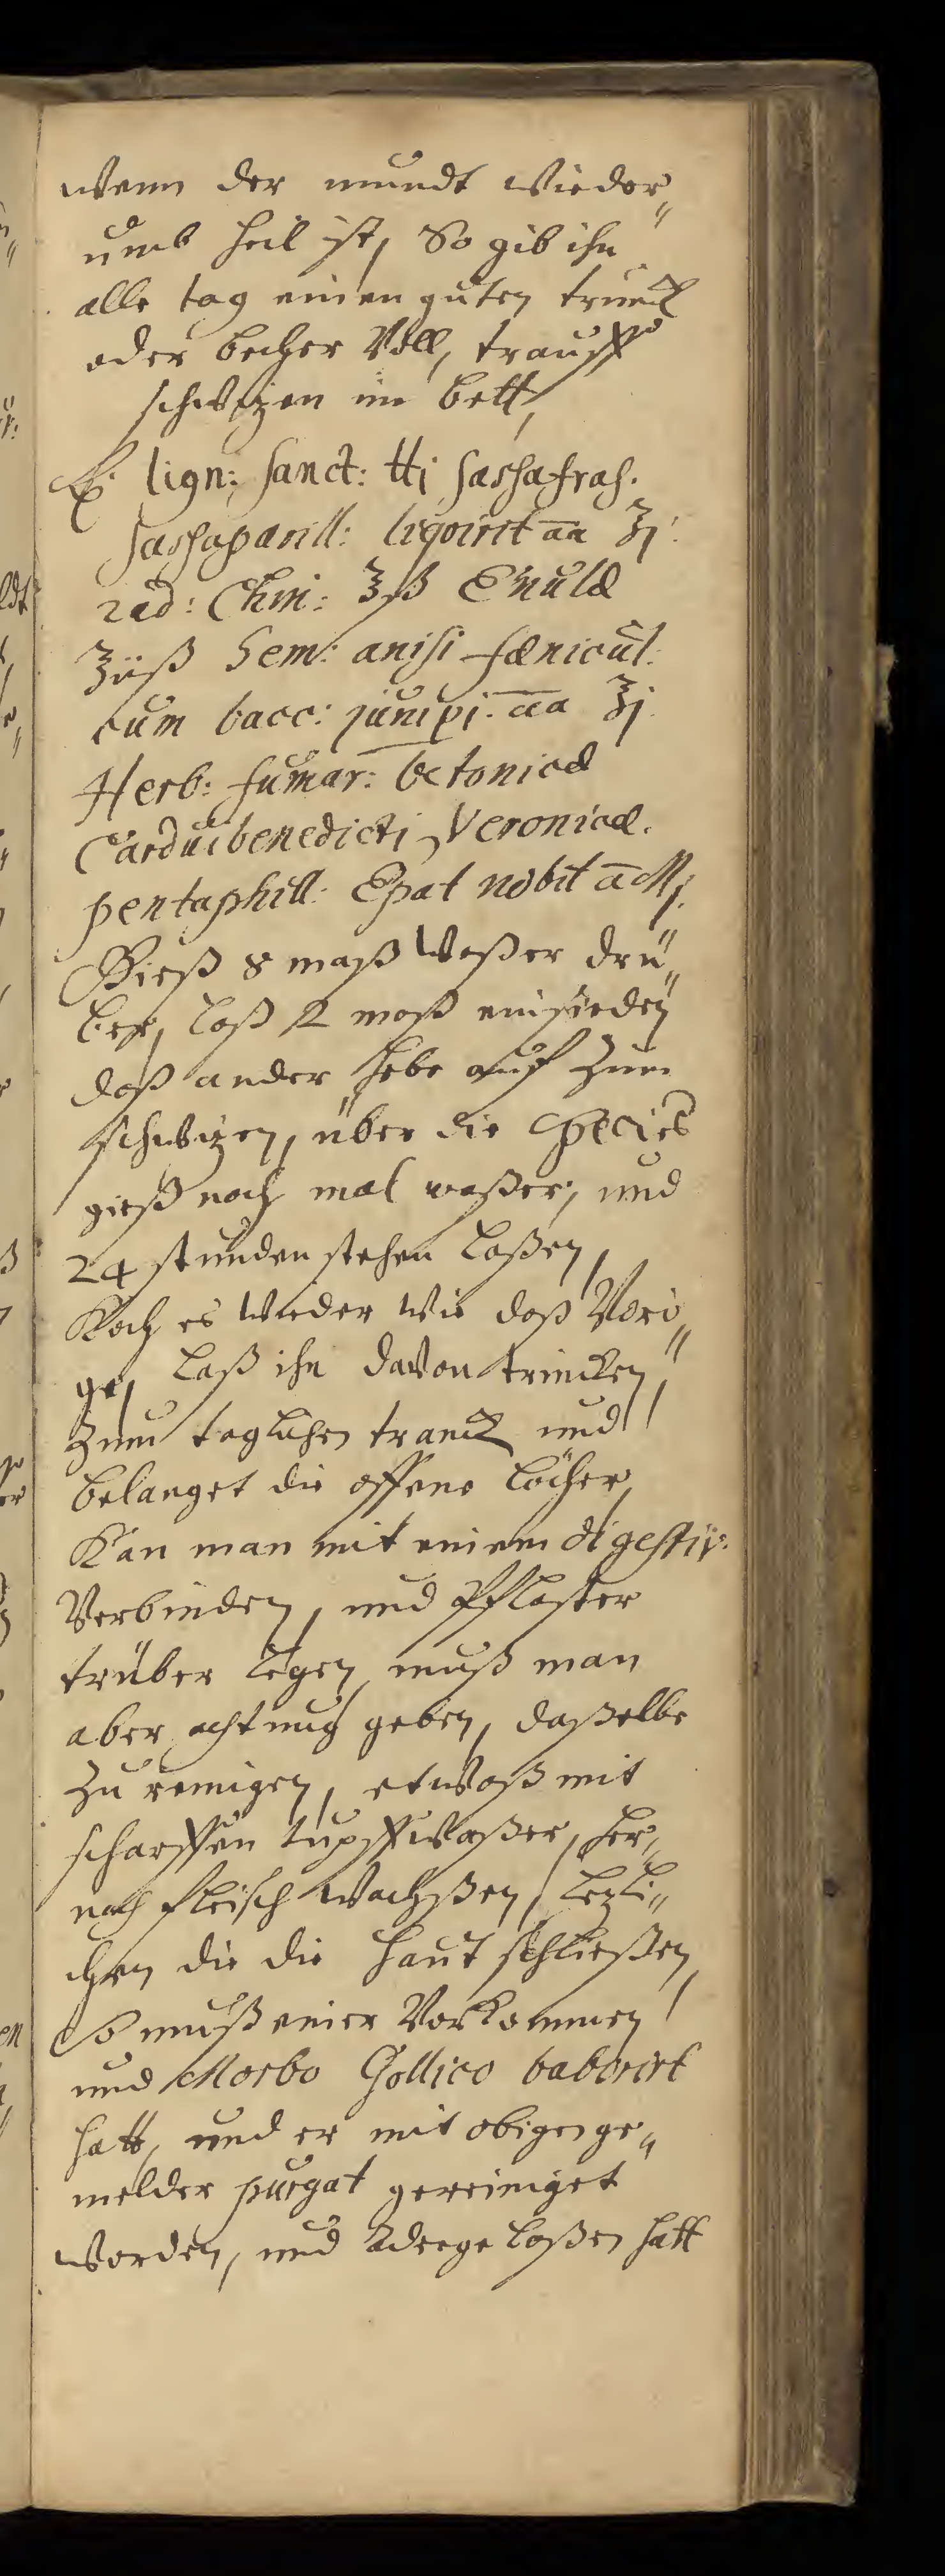 wenn der mundt wieder„
umb heil ist, So gib ihn
alle tag einen guten trunck
oder becher Voll, trauff
schwizen im bett,
℞. lign: sanct: ℔j sassafras.
sassaparill: liqvirit āā ℥j.
rad: Chin: ℥ß Enulæ
℥iiß Sem: anisi fœnicul:
cum bacc: junipi: āāa ℥j
Herb: fumar: betonicæ
Carduibenedicti, Veronicæ.
pentaphill: Epat nobil āa Mj.
Gieß 8 maß waßer drü„
ber, laß 2 maß einsieden
daß ander hebe auf zum
schwizen, über die Species
gieß noch mal waßer, und
24 stunden stehen laßen,
Koch es wieder wie daß Vori„
ge, laß ihn davon trincken,
zum taglichen tranck und
belanget die offene löcher,
Kan man mit einem digestiv:
Verbinden, und Pflaster
trüber legen, muß man
aber achtung geben, daßelbe
zu reinigen, etwaß mit
scharffen tupffwaßer, her„
nach fleisch wachßen, lezli„
chen die die haut schließen,
So muß einer Vorkommen
und Morbo Gallico baborirt
hatt, und er mit obigen ge„
melder purgat gereiniget
worden, und Adergelaßen hatt